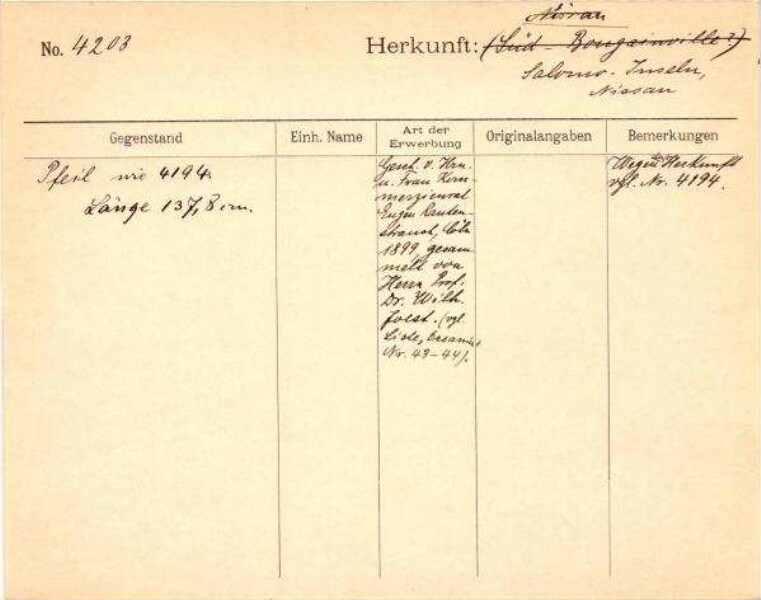 Nissan
No. 4203
Herkunft: (Süd-Bougainville?)
Salomo-Inseln,
Nissan
Gegenstand
Einh. Name
Art der
Erwerbung
Originalangaben
Bemerkungen
Pfeil wie 4194.
Länge 137,8 cm.
Gesch. v. Hrn.
u. Frau Kom-
merzienrat
Eugen Rauten-
strauch, Cöln
1899, gesam-
melt von
Herrn Prof.
Dr. Wilh.
Joest. (vgl.
Liste,
Nr. 43-44).
Wegen Herkunft
vgl. Nr. 4194.